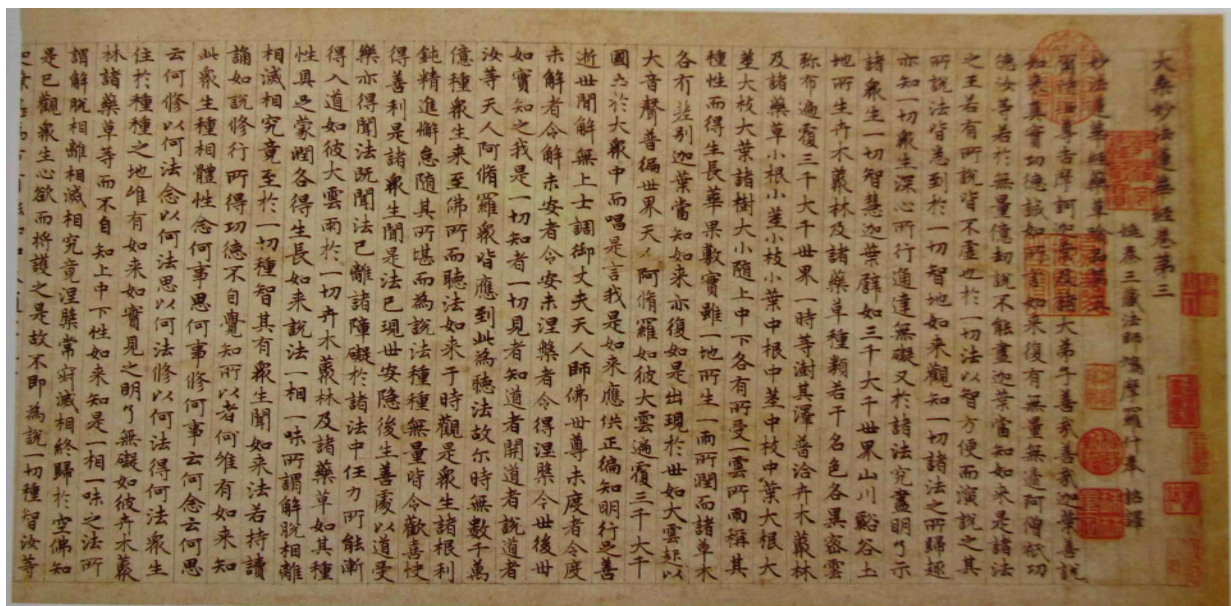 大乘妙法蓮華經卷第三
姚秦三藏法師鳩摩羅什奉 詔譯
妙法蓮華經藥草喻品第五
爾時世尊告摩訶迦葉及諸大弟子善哉善哉迦葉善說
如來真實功德誠如所言如來復有無量無邊阿僧祇功
德汝等若於無量億劫說不能盡迦葉當知如來是諸法
之王若有所說皆不虛也於一切法以智方便而演說之其
所說法皆悉到於一切智地如來觀知一切諸法之所歸趣
亦知一切眾生深心所行通達無礙又於諸法究盡明了示
諸眾生一切智慧迦葉譬如三千大千世界山川谿谷土
地所生卉木叢林及諸藥草種類若干名色各異密雲
弥布遍覆三千大千世界一時等澍其澤普洽卉木叢林
及諸藥草小根小莖小枝小葉中根中莖中枝中葉大根大
莖大枝大葉諸樹大小隨上中下各有所受一雲所雨稱其
種性而得生長華果敷實雖一地所生一雨所潤而諸草木
各有差別迦葉當知如來亦復如是出現於世如大雲起以
大音聲普徧世界天人阿脩羅如彼大雲遍覆三千大千
國土於大眾中而唱是言我是如來應供正徧知明行足善
逝世間解無上士調御丈夫天人師佛世尊未度者令度
未解者令解未安者令安未涅槃者令得涅槃今世後世
如實知之我是一切知者一切見者知道者開道者說道者
汝等天人阿脩羅眾皆應到此為聽法故尔時無數千萬
億種眾生來至佛所而聽法如來于時觀是眾生諸根利
鈍精進懈怠隨其所堪而為說法種種無量皆令歡喜快
得善利是諸眾生聞是法已現世安隱後生善處以道受
樂亦得聞法既聞法已離諸障礙於諸法中任力所能漸
得入道如彼大雲雨於一切卉木叢林及諸藥草如其種
性具足蒙潤各得生長如來說法一相一味所謂解脫相離
相滅相究竟至於一切種智其有眾生聞如來法若持讀
誦如說修行所得功德不自覺知所以者何唯有如來知
此眾生種相體性念何事思何事修何事云何念云何思
云何修以何法念以何法思以何法修以何法得何法眾生
住於種種之地唯有如來如實見之明了無礙如彼卉木叢
林諸藥草等而不自知上中下性如來知是一相一味之法所
謂解脫相離相滅相究竟涅槃常寂滅相終歸於空佛知
是已觀眾生心欲而將護之是故不即為說一切種智汝等